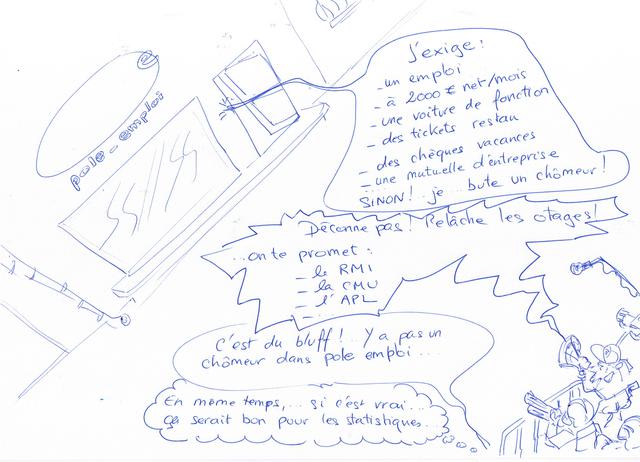 pole-emploi
J'exige :
- un emploi
- à 2000 € net/mois
- une voiture de fonction
- des tickets restau
- des chèques vacances
- une mutuelle d'entreprise
SINON ! je bute un chômeur !
Déconne pas ! Relâche les otages !
...on te promet :
- le RMI
- la CMU
- l'APL
- ...
C'est du bluff !.. Y a pas un
chômeur dans pole emploi....
En même temps,... si c'est vrai...
ça serait bon pour les statistiques...